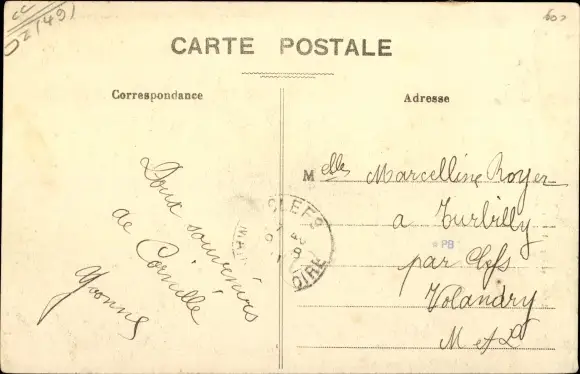 CC
DZ (49)
600
CARTE POSTALE
Correspondance
Adresse
Doux souvenirs
de Cornille
Yvonne
Melles Marcelline Royer
a Turbilly
par Clefs
Volandry
M et L
CLEFS
LOIRE
* PB